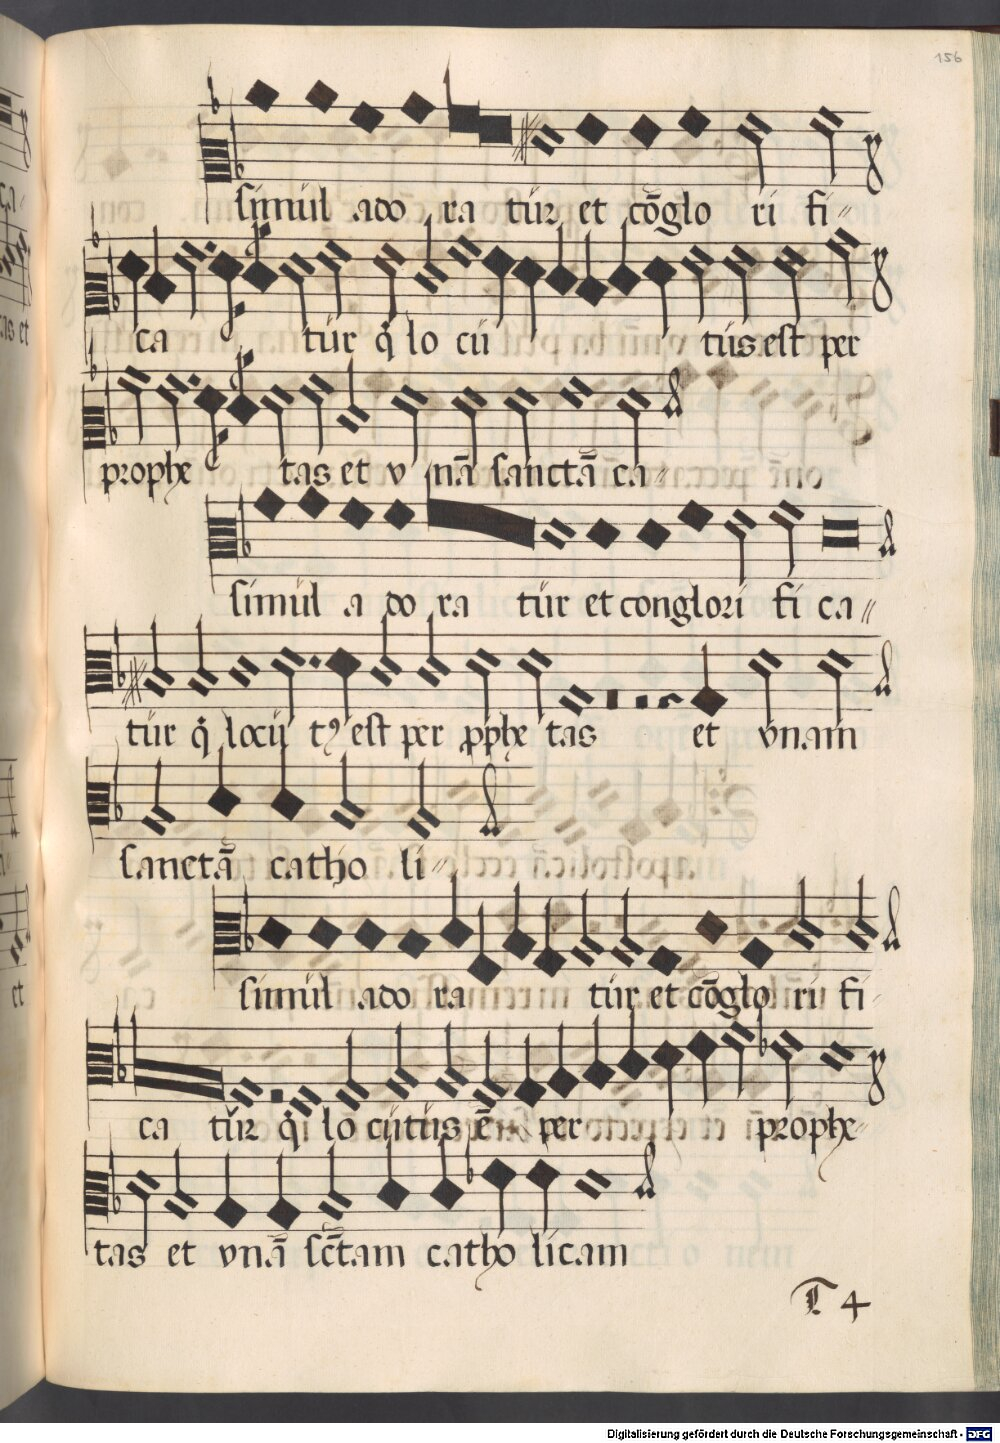 156
simul ado ra tur et cōglo ri fi-
ca tur q̄ lo cu tus est per
prophe tas et v nā sanctā ca-
simul a do ra tur et conglori fi ca-
tur q̄ locu tꝰ est per pphe tas et vnam
sanctā catho li-
simul ado ra tur et cōglo ri fi-
ca tur q̄ lo cutus ē per prophe-
tas et vnā sc̄tam catho licam
T 4
et
Digitalisierung gefördert durch die Deutsche Forschungsgemeinschaft - DFG